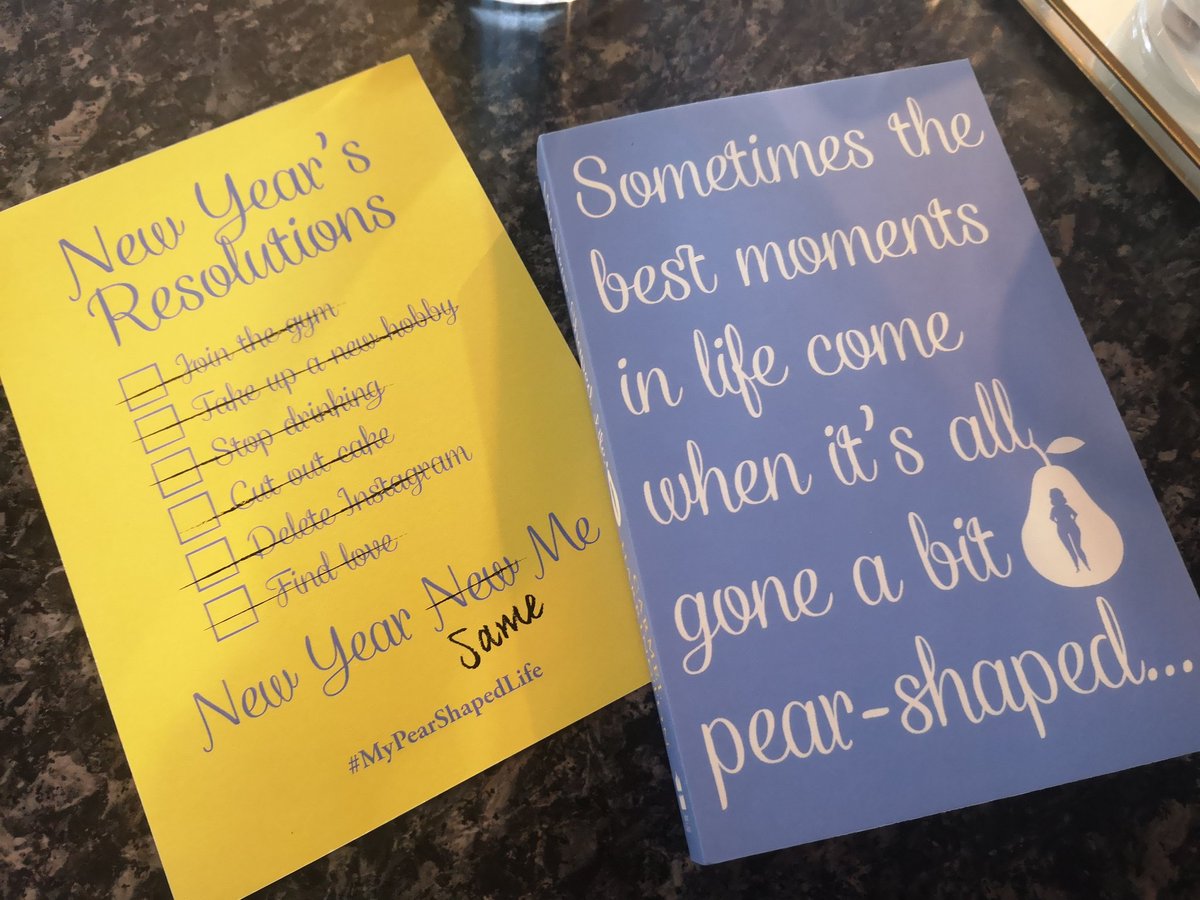 New Year's
Resolutions
Join the gym
Take up a new hobby
Stop drinking
Cut out cake
Delete Instagram
Find love
New Year New Me
Same
#MyPearShapedLife
Sometimes the
best moments
in life come
when it's all
gone a bit
pear-shaped...